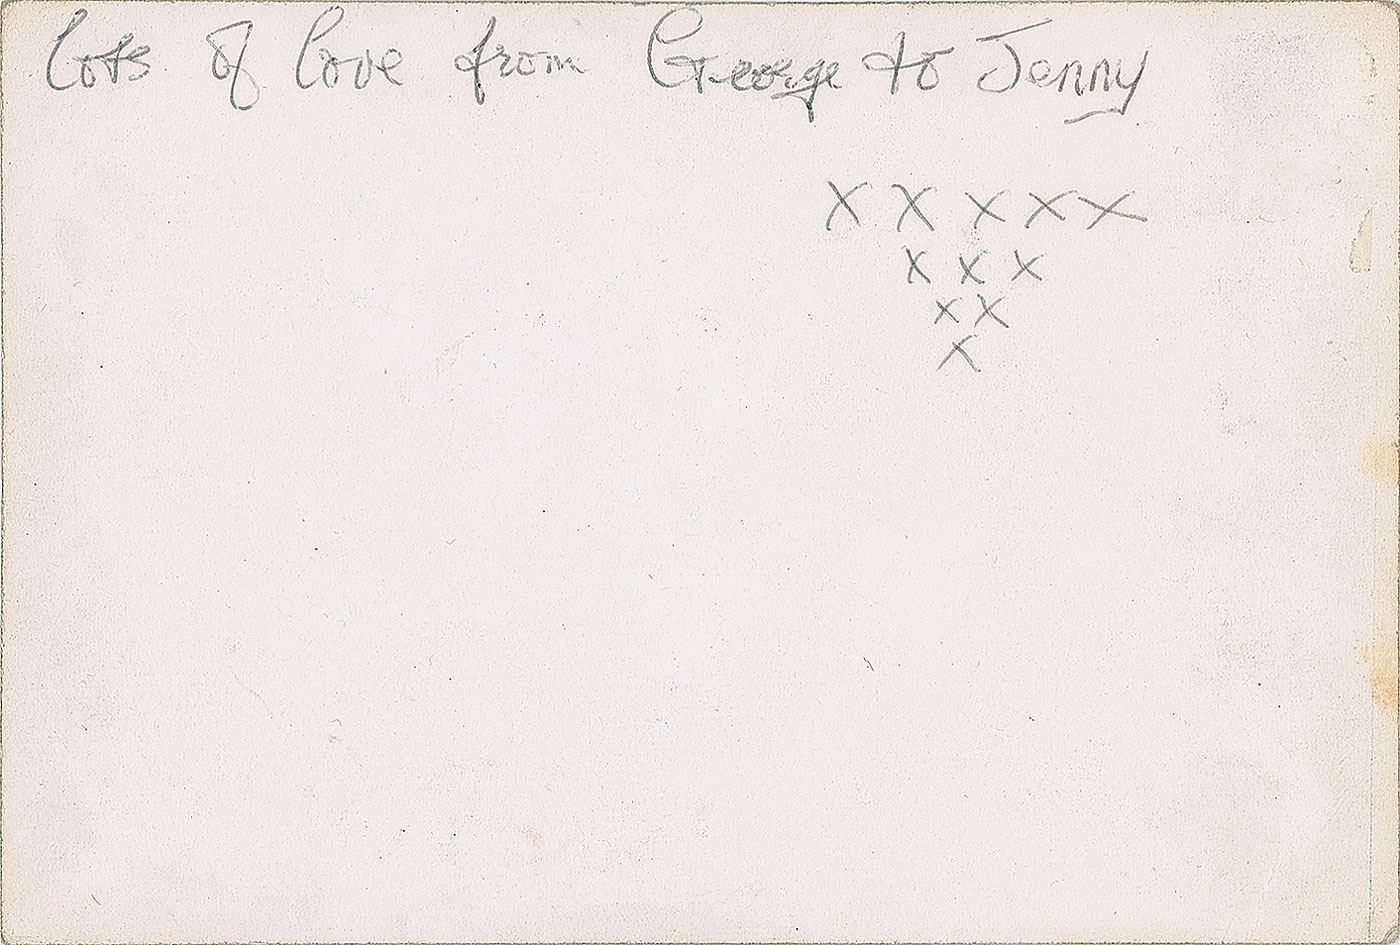 Lots of love from George to Jenny
X X X X X
X X X
X X
X